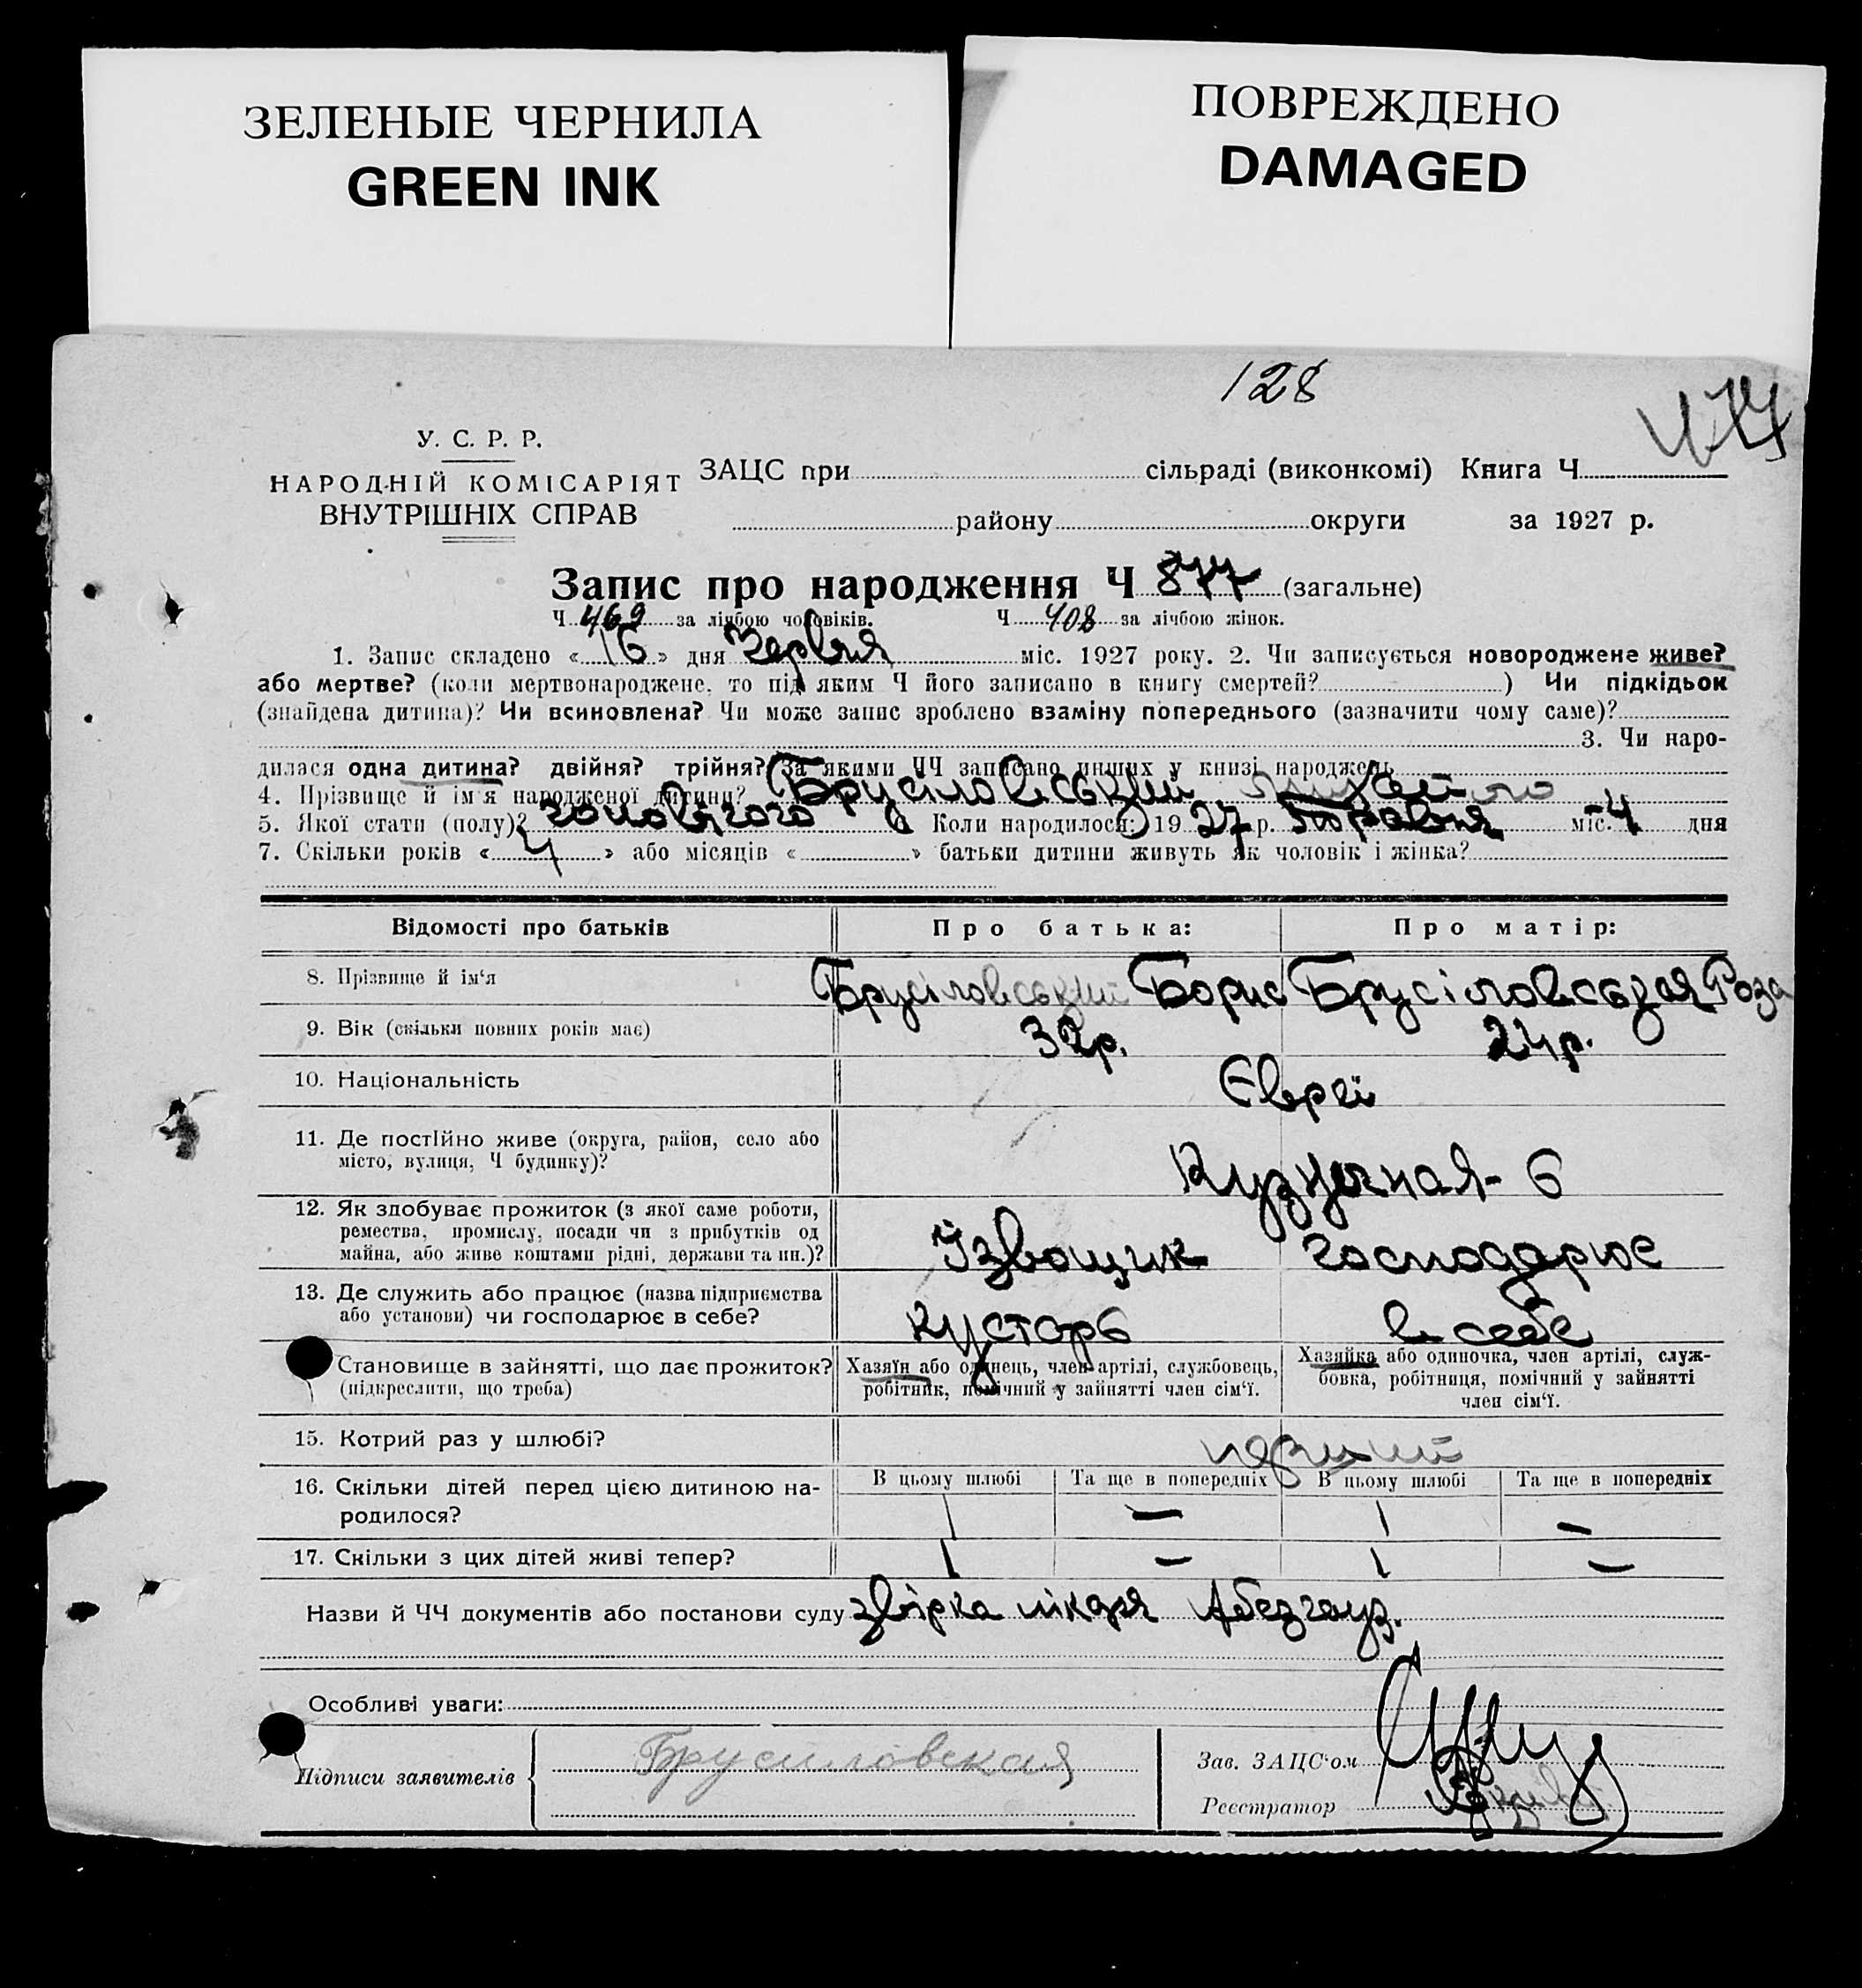 ЗЕЛЕНЫЕ ЧЕРНИЛА
GREEN INK
ПОВРЕЖДЕНО
DAMAGED
128
У. С. Р. Р.
НАРОДНІЙ КОМІСАРІЯТ
ВНУТРІШНІХ СПРАВ
ЗАЦС при сільраді (виконкомі) Книга Ч
району округи за 1927 р.
Запис про народження Ч 877 (загальне)
Ч 469 за лічбою чоловіків. Ч 408 за лічбою жінок.
1. Запис складено « 16 » дня Червня міс. 1927 року. 2. Чи записується новороджене живе?
або мертве? (коли мертвонароджене, то під яким Ч його записано в книгу смертей? ) Чи підкідьок
(знайдена дитина)? Чи всиновлена? Чи може запис зроблено взаміну попереднього (зазначити чому саме)?
3. Чи наро-
дилася одна дитина? двійня? трійня? За якими ЧЧ записано инших у книзі народжень
4. Прізвище й ім'я народженої дитини? Брусіловський Михайло
5. Якої стати (полу)? чоловічого Коли народилося: 1927 р. Травня міс. 4 дня
7. Скільки років « 4 » або місяців « » батьки дитини живуть як чоловік і жінка?
Відомості про батьків Про батька: Про матір:
8. Прізвище й ім'я Брусіловський Борис Брусіловская Роза
9. Вік (скільки повних років має) 32р. 24р.
10. Національність Євреї
11. Де постійно живе (округа, район, село або
місто, вулиця, Ч будинку)? Кузнечная - 6
12. Як здобуває прожиток (з якої саме роботи,
ремества, промислу, посади чи з прибутків од
майна, або живе коштами рідні, держави та ин.)? Ізвощик господарює
13. Де служить або працює (назва підприємства
або установи) чи господарює в себе? кустарь в себе
Становище в зайнятті, що дає прожиток?
(підкреслити, що треба)
Хазяїн або одинець, член артілі, службовець,
робітник, помічний у зайнятті член сім'ї.
Хазяйка або одиночка, член артілі, служ-
бовка, робітниця, помічний у зайнятті
член сім'ї.
15. Котрий раз у шлюбі? перший
В цьому шлюбі Та ще в попередніх В цьому шлюбі Та ще в попередніх
16. Скільки дітей перед цією дитиною на-
родилося? 1 — 1 —
17. Скільки з цих дітей живі тепер? 1 — 1 —
Назви й ЧЧ документів або постанови суду звірка лікаря Абезгауз.
Особливі уваги:
Підписи заявителів Брусиловская
Зав. ЗАЦС'ом
Реєстратор